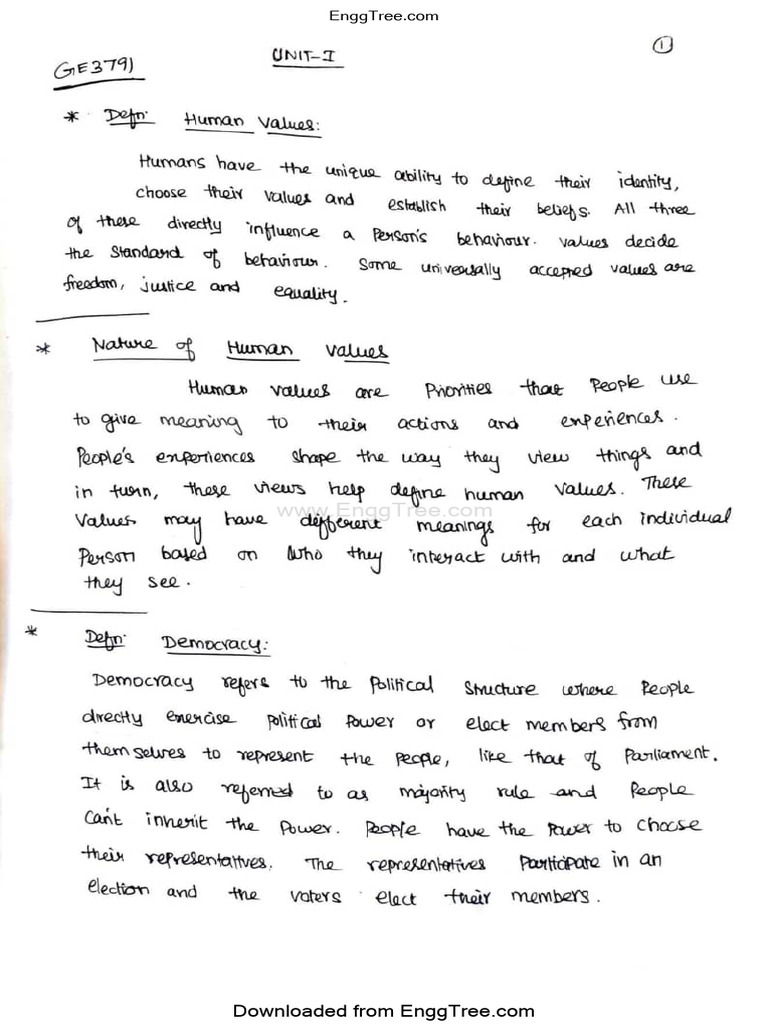 EnggTree.com
UNIT-I
1
GE3791
* Defn: Human Values:
Humans have the unique ability to define their identity,
choose their values and establish their beliefs. All three
of these directly influence a Person's behaviour. Values decide
the Standard of behaviour. Some universally accepred values are
freedom, justice and equality.
* Nature of Human values
Human values are Priorities that People use
to give meaning to their actions and experiences.
People's experiences shape the way they view things and
in turn, these views help define human values. These
www.EnggTree.com
Values may have different meanings for each individual
Person based on Who they interact with and what
they see.
* Defn: Democracy:
Democracy refers to the Political Structure where People
directly exercise political Power or elect members from
themselves to represent the People, like that of Parliament.
It is also referred to as majority rule and People
Can't inherit the Power. People have the Power to choose
their representatives. The representatives Participate in an
election and the voters elect their members.
Downloaded from EnggTree.com